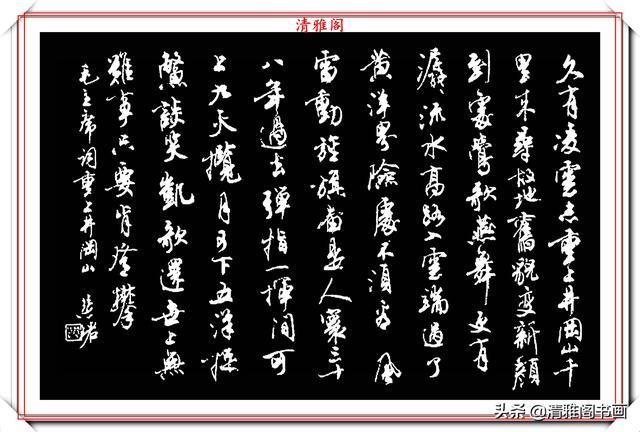 清雅阁
久有凌雲志重上井岡山千
里来尋故地舊貌變新顔
到處鶯歌燕舞更有
潺流水高路入雲端過了
黄洋界險處不須看風
雷動旌旗奮是人寰三十
八年過去彈指一揮間可
上九天攬月可下五洋捉
鱉談笑凱歌還世上無
難事只要肯登攀
毛主席词重上井岡山
头条@清雅阁书画